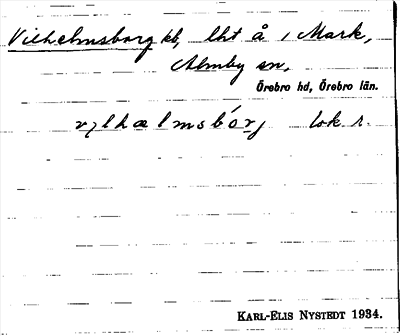 Vilhelmsborg kb, lht å 1 Mark,
Almby sn,
Örebro hd, Örebro län.
vilhælmsbórj lok r.
KARL-ELIS NYSTEDT 1934.